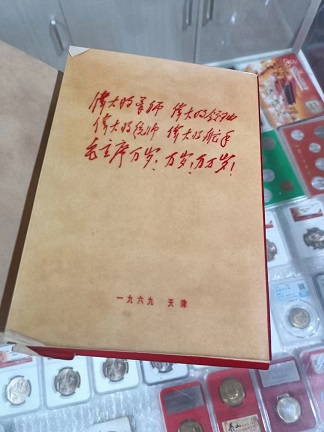 偉大的导师 偉大的领袖
偉大的统帅 偉大的舵手
毛主席万岁!万岁!万万岁!
一九六九 天津